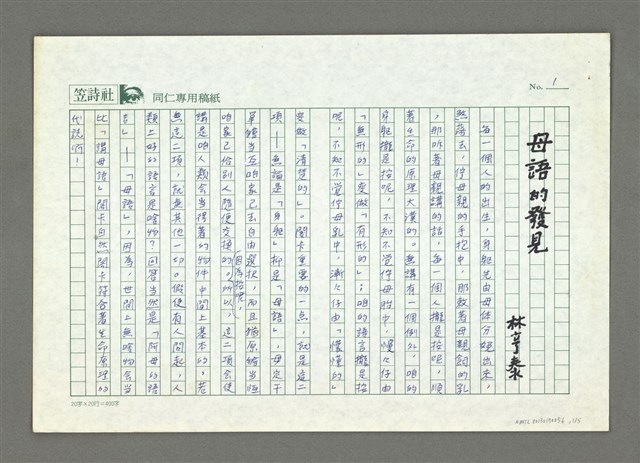 笠詩社 同仁專用稿紙
No. 1
母語的發見
林亨泰
每一個人的出生，身軀先由母体分娩出來，
然落去，佇母親的手抱中，那飲著母親詞的乳
，那听著母親講的話，每一個人攏是按呢，順
著生命的原理大漢的。無講有一個例外，咱的
身軀攏是按呢，不知不覺佇母胎中，慢慢仔由
「無形的」変做「有形的」；咱的語言攏是按
呢，不知不覺佇母乳中，漸漸仔由「懞懂的」
変做「清楚的」。閣卡重要的一点，就是這二
項——無論是「身軀」抑是「母語」，毋是干
單據在咱家己去自由選択，而且
咱家己給別人隨便交換的。因為按呢，所以，這二項會使
講是咱人類会当得著的物件中間上基本的，若
無這二項，就無其他一切。假使有人問起，人
類上好的語言是啥物？回答当然是「阿母的語
言」——「母語」，因為，世間上無啥物会当
比「講母語」閣卡自然閣卡符合著生命原理的
代誌啊！
20字×20行=400字